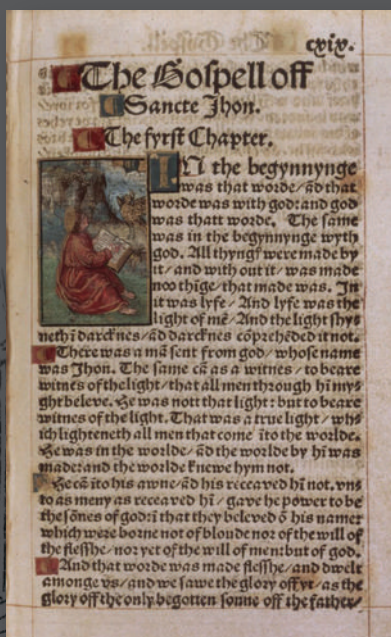 cxix.
The Gospell off
Sancte Jhon.
The fyrst Chapter.
IN the begynnynge
was that worde/ ād that
worde was with god: and god
was thatt worde. The same
was in the begynnynge wyth
god. All thyngſ were made by
it/ and with out it/ was made
noo thīge/ that made was. In
it was lyfe/ And lyfe was the
light of mē/ And the light shy⸗
neth ī darcknes/ ād darcknes cōprehēded it not.
There was a mā sent from god/ whose name
was Jhon. The same cā as a witnes/ to beare
witnes of the light/ that all men through hī mys⸗
ght beleve. He was nott that light: but to beare
witnes of the light. That was a true light/ wh⸗
ich lighteneth all men that come īto the worlde.
He was in the worlde/ ād the worlde by hī was
made: and the worlde knewe hym not.
He cā īto his awne/ ād his receaved hī not. vn⸗
to as meny as receaved hī/ gave he power to be
the sōnes of god: ī that they beleved ō his name:
which were borne not of bloude nor of the will of
the flesshe/ nor yet of the will of men: but of god.
And that worde was made flesshe/ and dwelt
amonge vs/ and we sawe the glory off yt/ as the
glory off the only begotten sonne off the father/